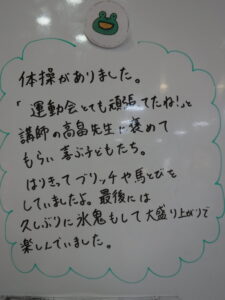 体操がありました。
「運動会とても頑張ってたね！」と
講師の高畠先生に褒めて
もらい喜ぶ子どもたち。
はりきってブリッヂや馬とびを
していましたよ。最後には
久しぶりに氷鬼もして大盛り上がりで
楽しんでいました。